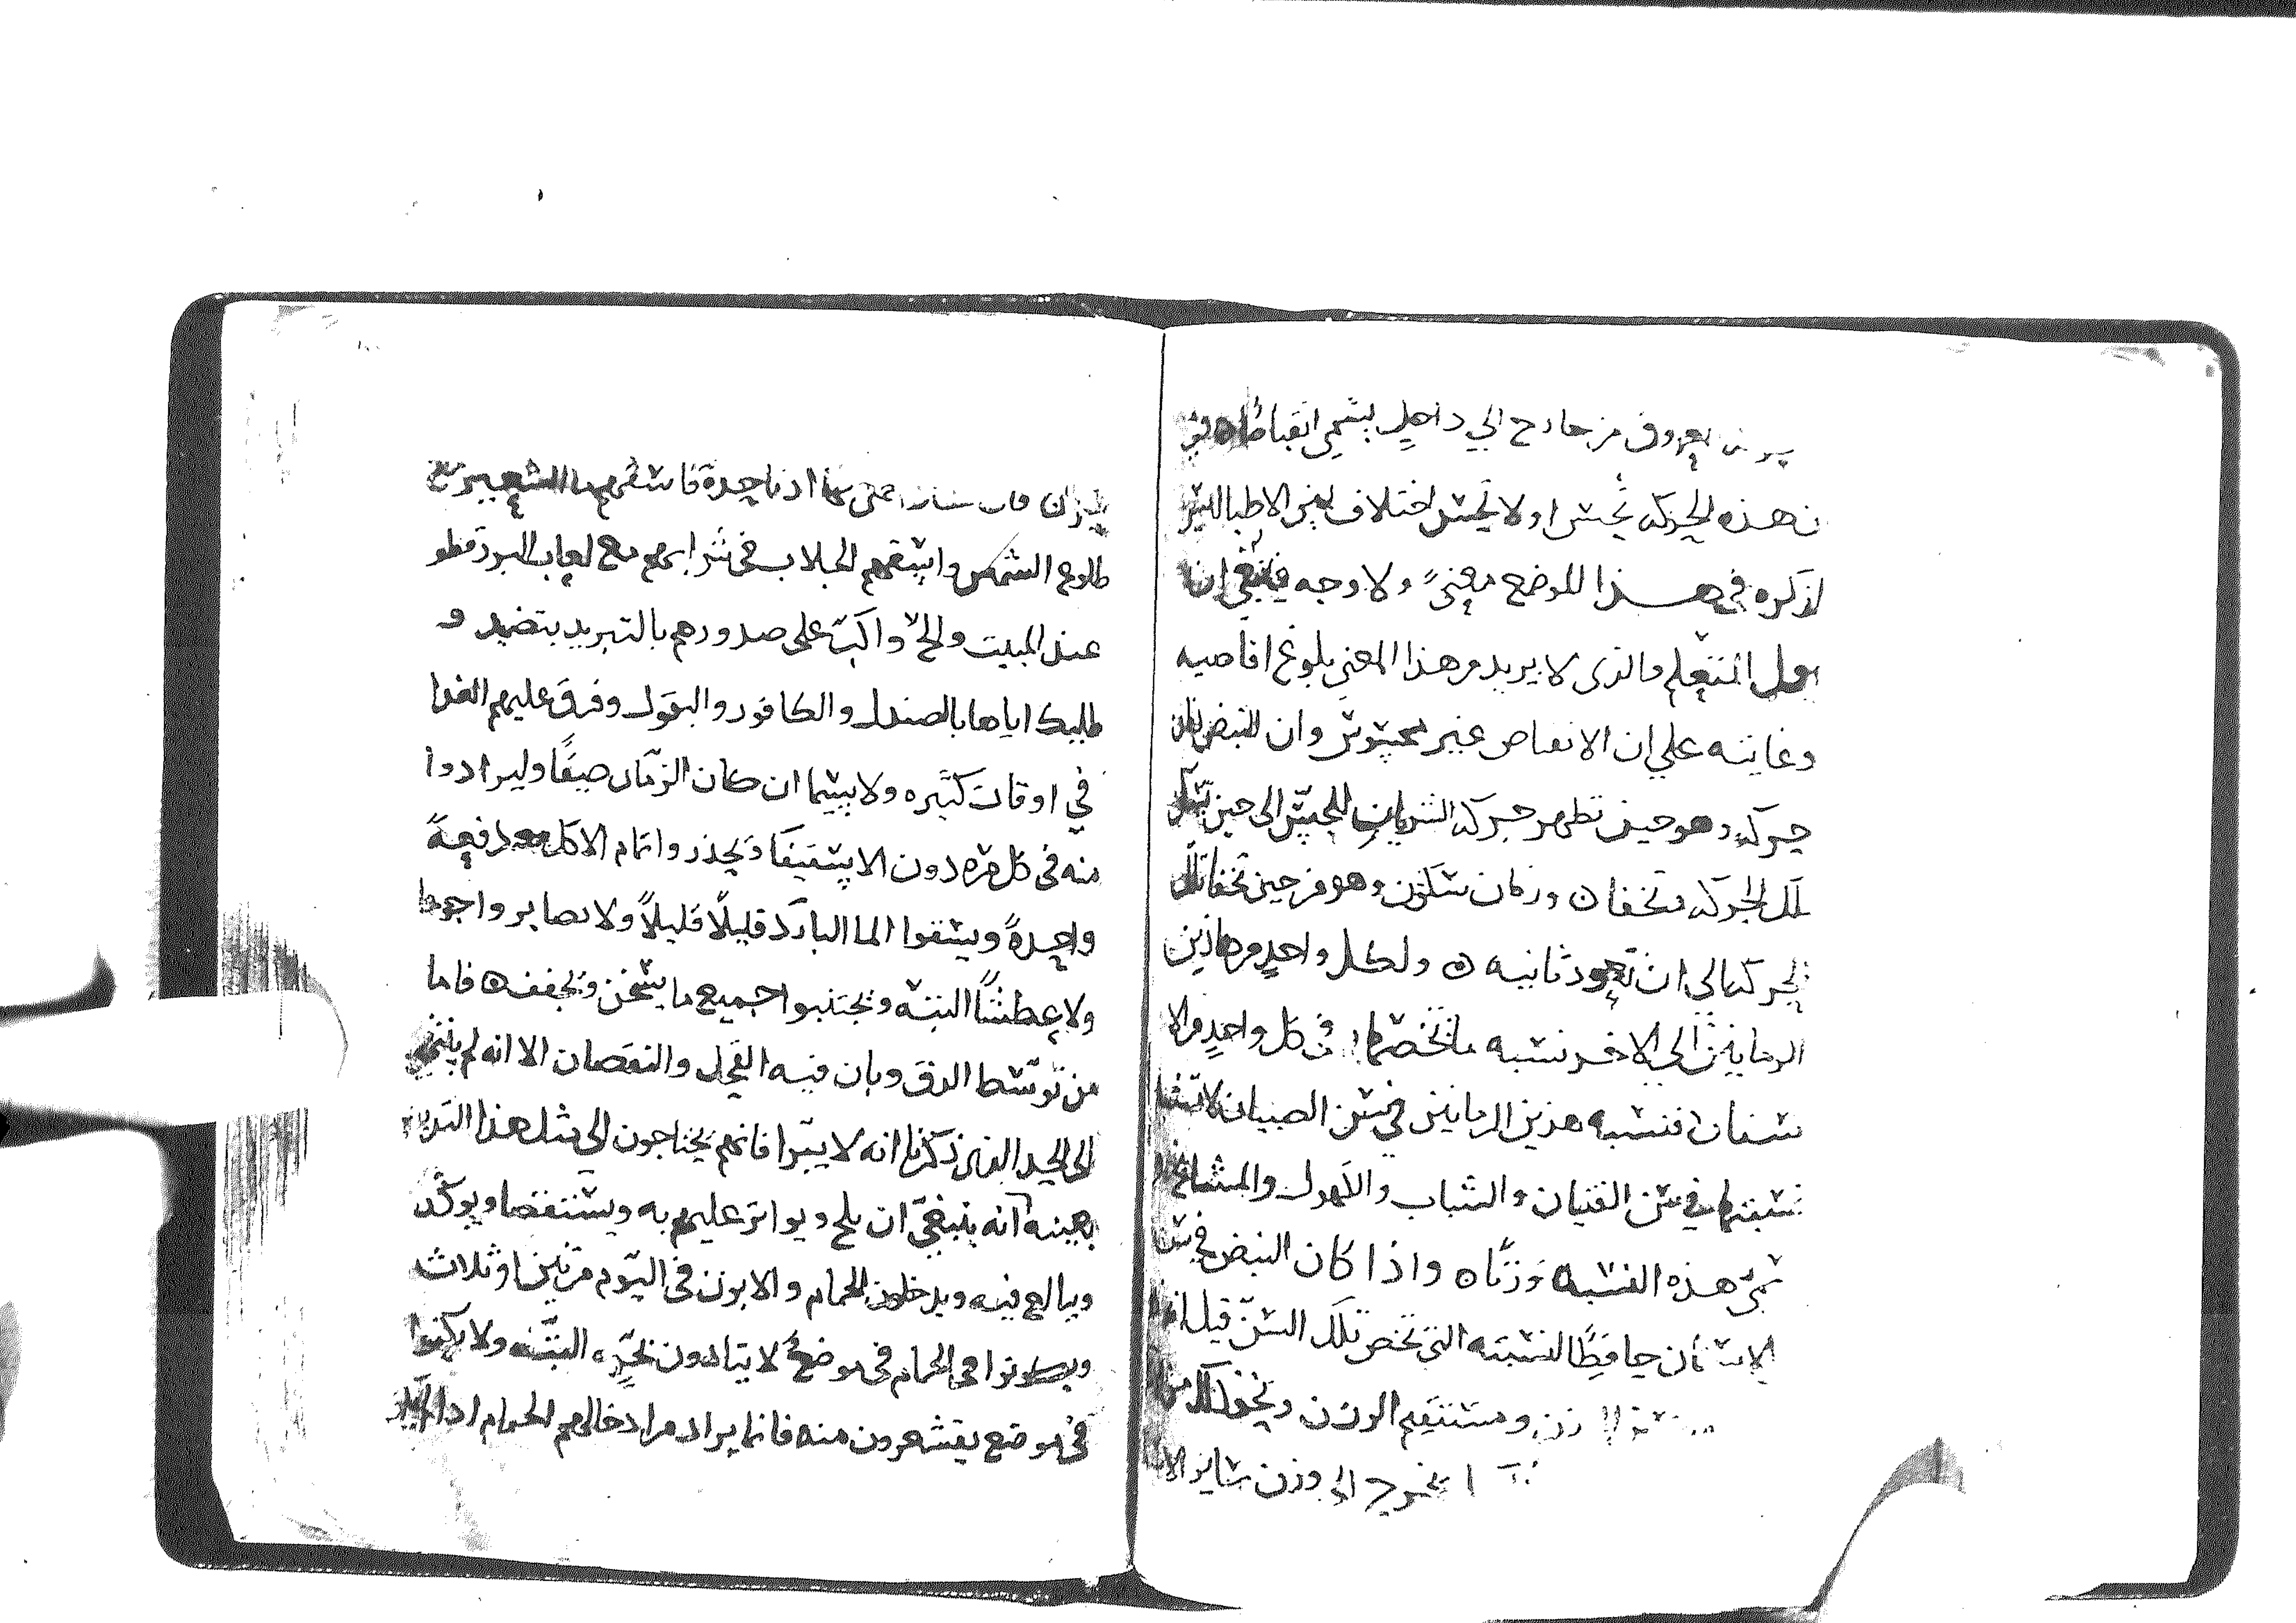 العروق من خارج الي داخل يسمى انقباضا
هذه الحركة تحس او لا تحس اختلاف بين الاطبا ليس
لذكره في هذا الموضع معنى ولا وجه فينبغي ان
يعمل المتعلم والذى لا يريد من هذا المعنى بلوغ اقاصيه
وغايته على ان الانقباض غير محسوس وان للنبض زمان
حركة وهو حين تظهر حركة الشريان للحس الى حين
تلك الحركة وتخفا ٥ وزمان سكون وهو من حين تخفا تلك
الحركة الى ان تعود ثانيه ٥ ولكل واحد من هاذين
الزمانين الى الاخر نسبه ما تخصها في كل واحد من الا
سنان فنسبه هذين الزمانين في سن الصبيان لا تشبه
نسبتها في سن الفتيان والشباب والكهول والمشايخ
تسمى هذه النسبه وزنا ٥ واذا كان النبض في سن
الاسنان حافظا لنسبته التي تخص تلك السن قيل انه
الوزن ومستقيم الوزن
يخرج الى وزن ساير الا
حدة فاسقهم ما الشعير مع
طلوع الشمس واسقهم الجلاب في شرابهم مع لعاب البزرقطو
عند المبيت والح واكب على صدورهم بالتبريد بتضميد و
طليك اياها بالصندل والكافور والبقول وفرق عليهم الغذا
في اوقات كثيره ولا سيما ان كان الزمان صيفا وليزادوا
منه في كل مره دون الاستيفا ويحذروا اتمام الاكل معه دفعة
واحدة ويسقوا الما البارد قليلا قليلا ولا يصابروا جوعا
ولا عطشا البته ويجتنبوا جميع ما يسخن ويجفف ٥ فاما
من توسط الدق وبان فيه القحل والنقصان الا انه لم ينته
الى الحد الذي ذكرنا انه لا يبرا فانهم يحتاجون الى مثل هذا التدبير
بعينه الا انه ينبغي ان يلح ويواتر عليهم به ويستقصا ويوكد
ويبالغ فيه ويدخلون الحمام والابزن في اليوم مرتين او ثلاث
ويكونوا في الحمام في موضع لا يتاذون بحره البته ولا يكونوا
في موضع يقشعرون منه فانما يراد من ادخالهم الحمام